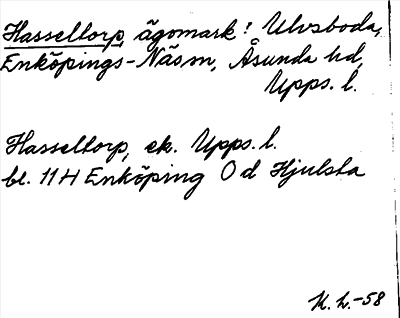 Hasseltorp, ägomark: Ulvsboda,
Enköpings-Näs sn, Åsunda hd,
Upps. l.
Hasseltorp, ek. Upps. l.
bl. 11H Enköping O d Hjulsta
K. L. -58